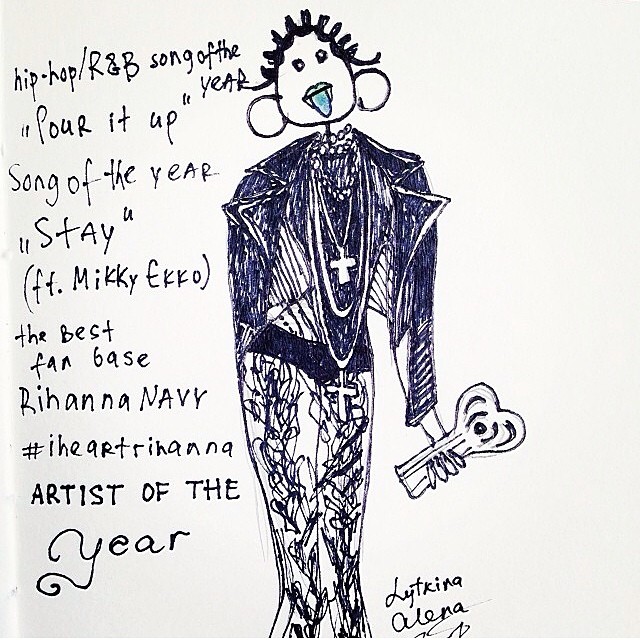 hip-hop/R&B song of the
YEAR
„Pour it up"
Song of the year
„Stay"
(ft. Mikky Ekko)
the Best
fan base
Rihanna NAVY
#iheartrihanna
ARTIST OF THE
year
Lytkina
alena